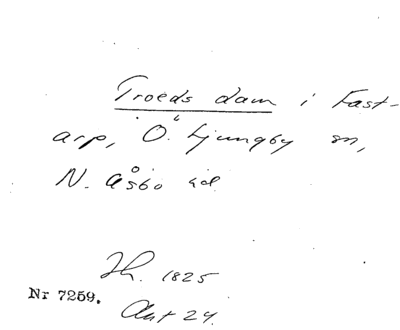 Troeds dam i Fast-
arp, Ö. Ljungby sn,
N. Åsbo hd
Jh. 1825
Nr 7259.
Akt 24.